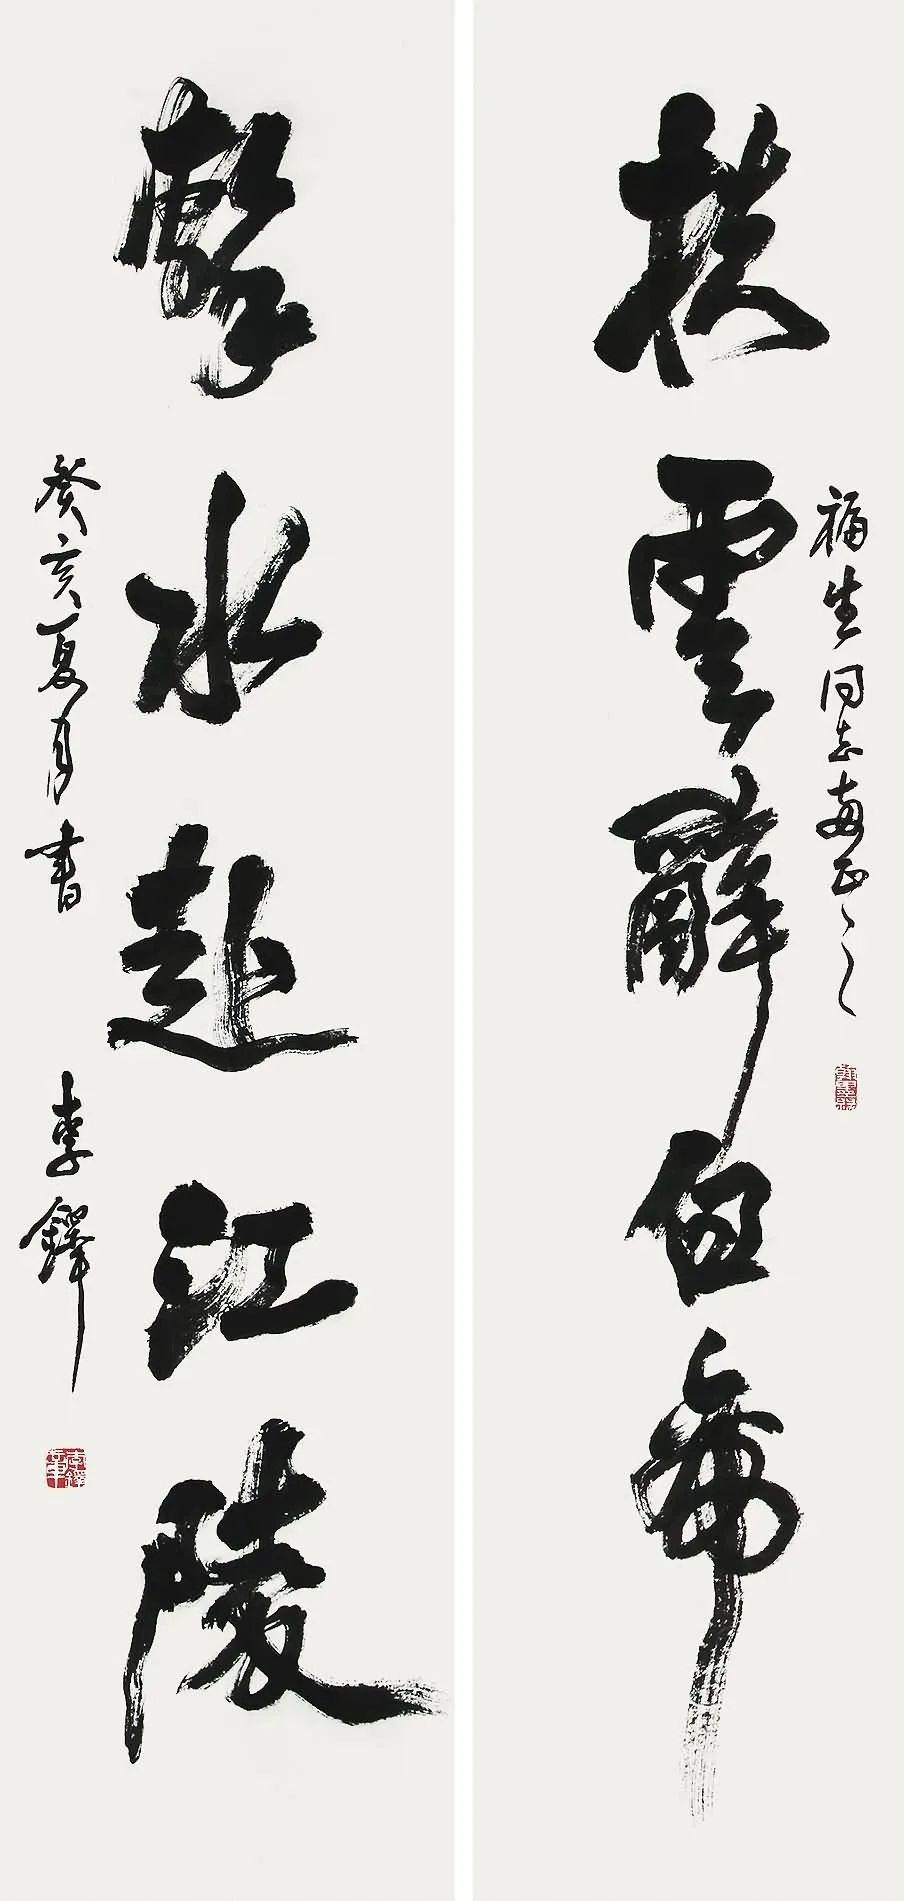 扶雲辭白帝
福生同志教正
擊水赴江陵
癸亥夏月書
李鐸